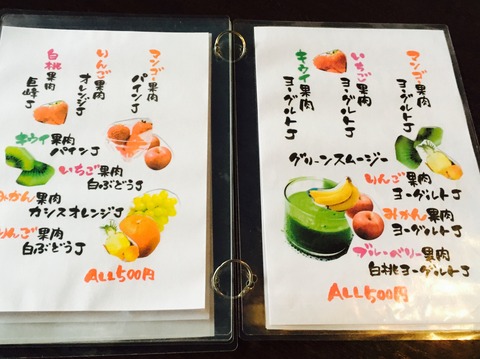 マンゴー果肉
パインJ
りんご果肉
オレンジJ
白桃果肉
巨峰J
キウイ果肉
パインJ
いちご果肉
白ぶどうJ
みかん果肉
カシスオレンジJ
りんご果肉
白ぶどうJ
ALL500円
マンゴー果肉
ヨーグルトJ
いちご果肉
ヨーグルトJ
キウイ果肉
ヨーグルトJ
グリーンスムージー
りんご果肉
ヨーグルトJ
みかん果肉
ヨーグルトJ
ブルーベリー果肉
白桃ヨーグルトJ
ALL500円